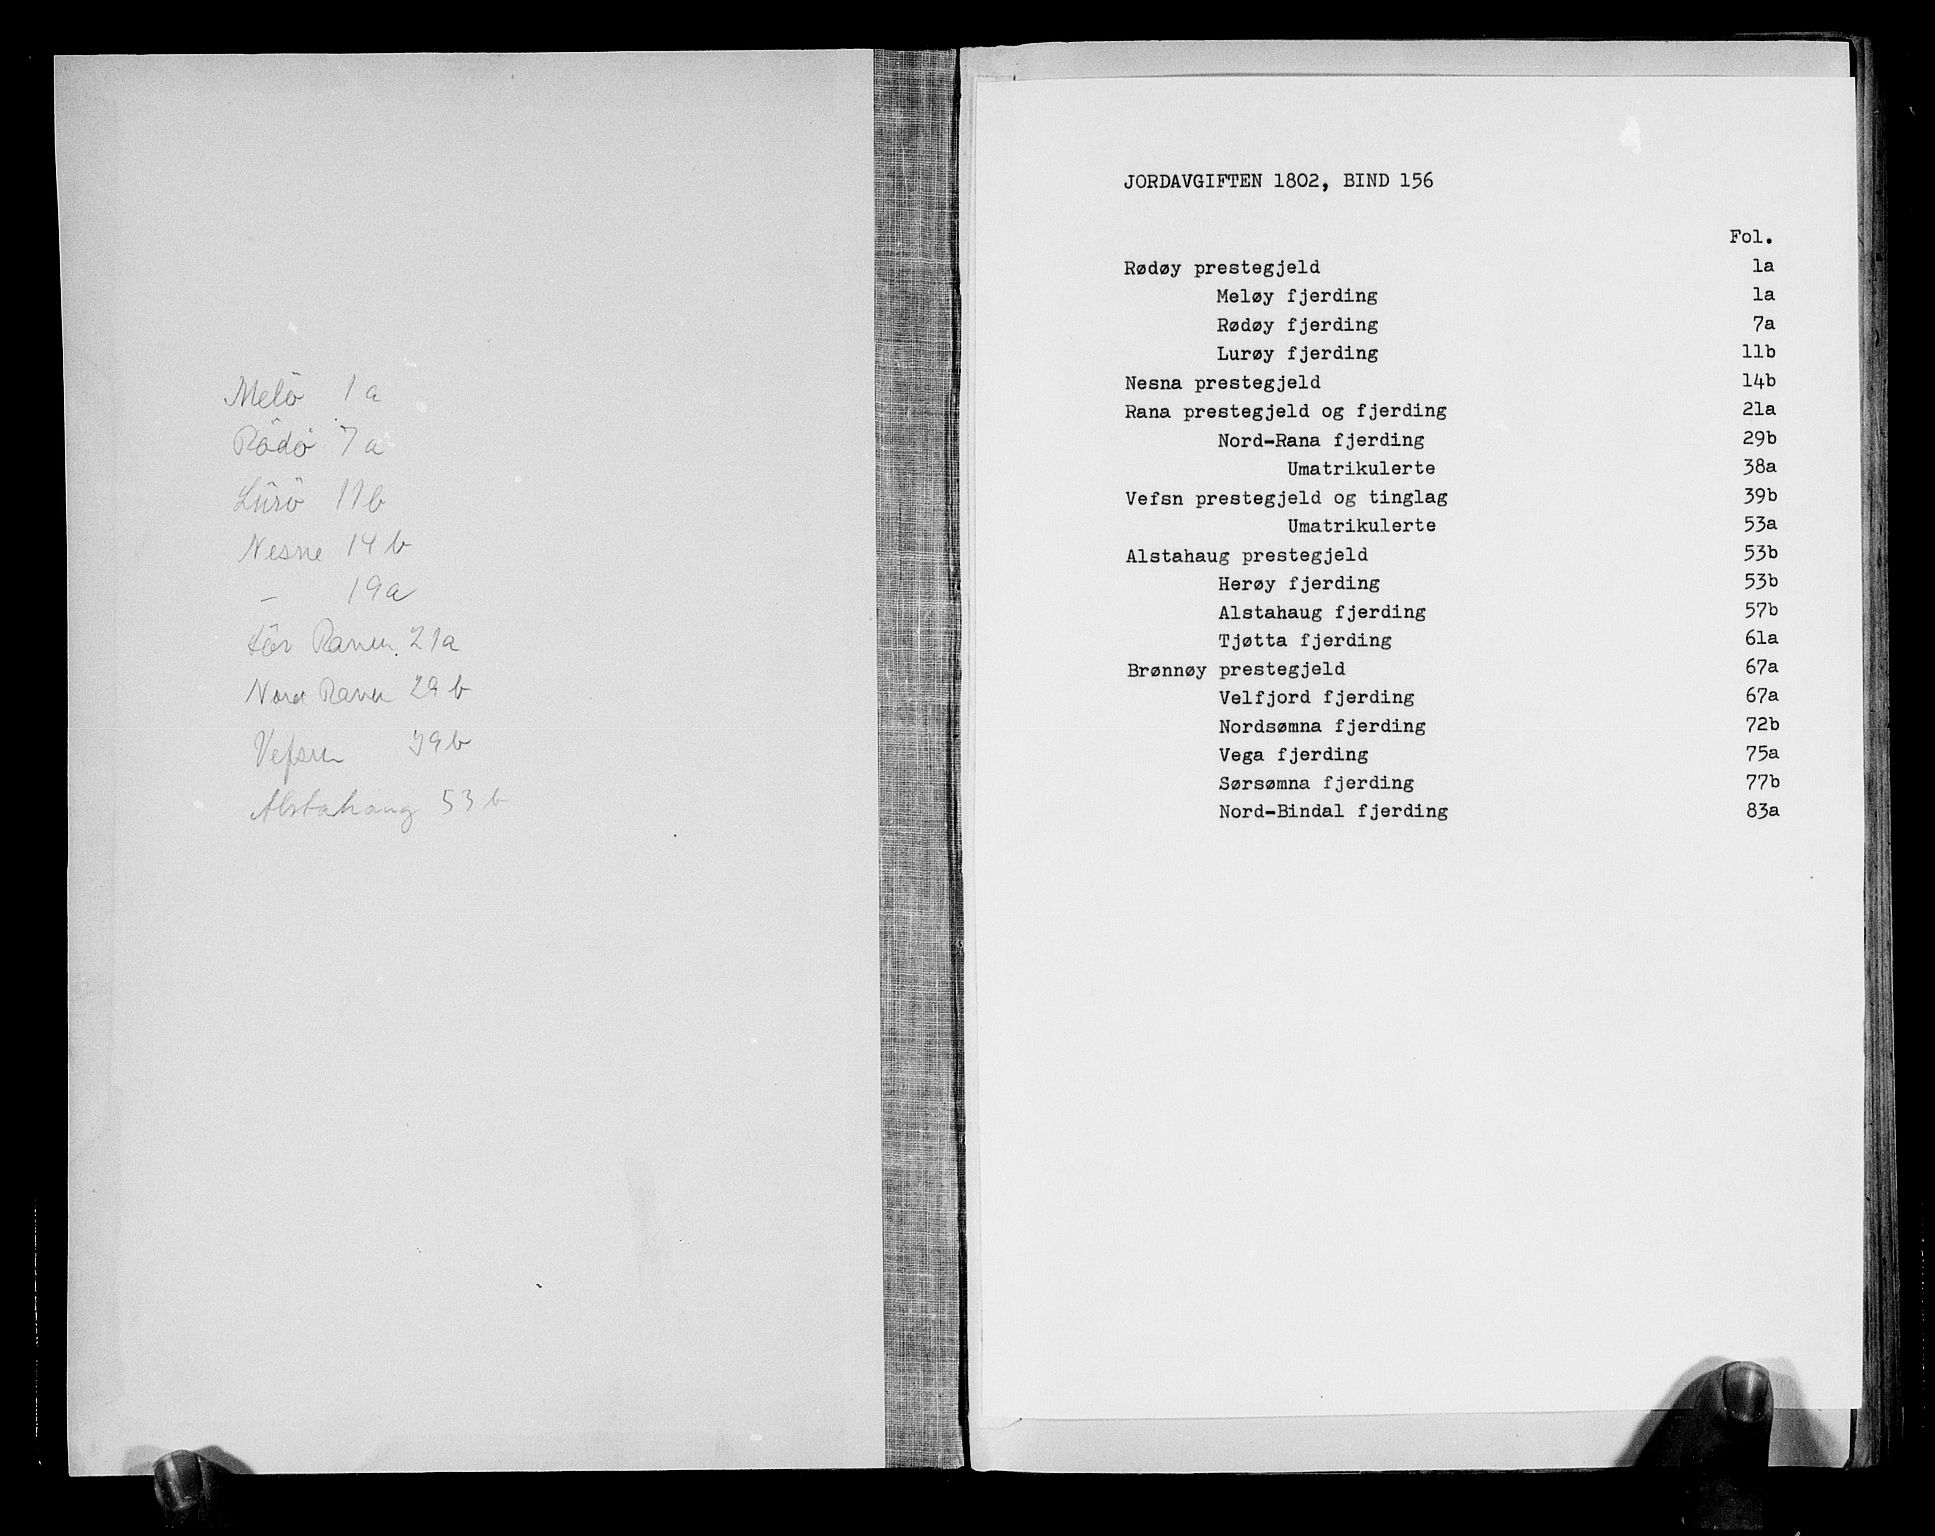 Melö 1a
Rödö 7a
Lurö 11b
Nesne 14b
– 19a
Ranen 21a
Nord Ranen 29b
Vefsen 39b
Alstahaug 53b
JORDAVGIFTEN 1802, BIND 156
Fol.
Rødøy prestegjeld 1a
Meløy fjerding 1a
Rødøy fjerding 7a
Lurøy fjerding 11b
Nesna prestegjeld 14b
Rana prestegjeld og fjerding 21a
Nord-Rana fjerding 29b
Umatrikulerte 38a
Vefsn prestegjeld og tinglag 39b
Umatrikulerte 53a
Alstahaug prestegjeld 53b
Herøy fjerding 53b
Alstahaug fjerding 57b
Tjøtta fjerding 61a
Brønnøy prestegjeld 67a
Velfjord fjerding 67a
Nordsømna fjerding 72b
Vega fjerding 75a
Sørsømna fjerding 77b
Nord-Bindal fjerding 83a